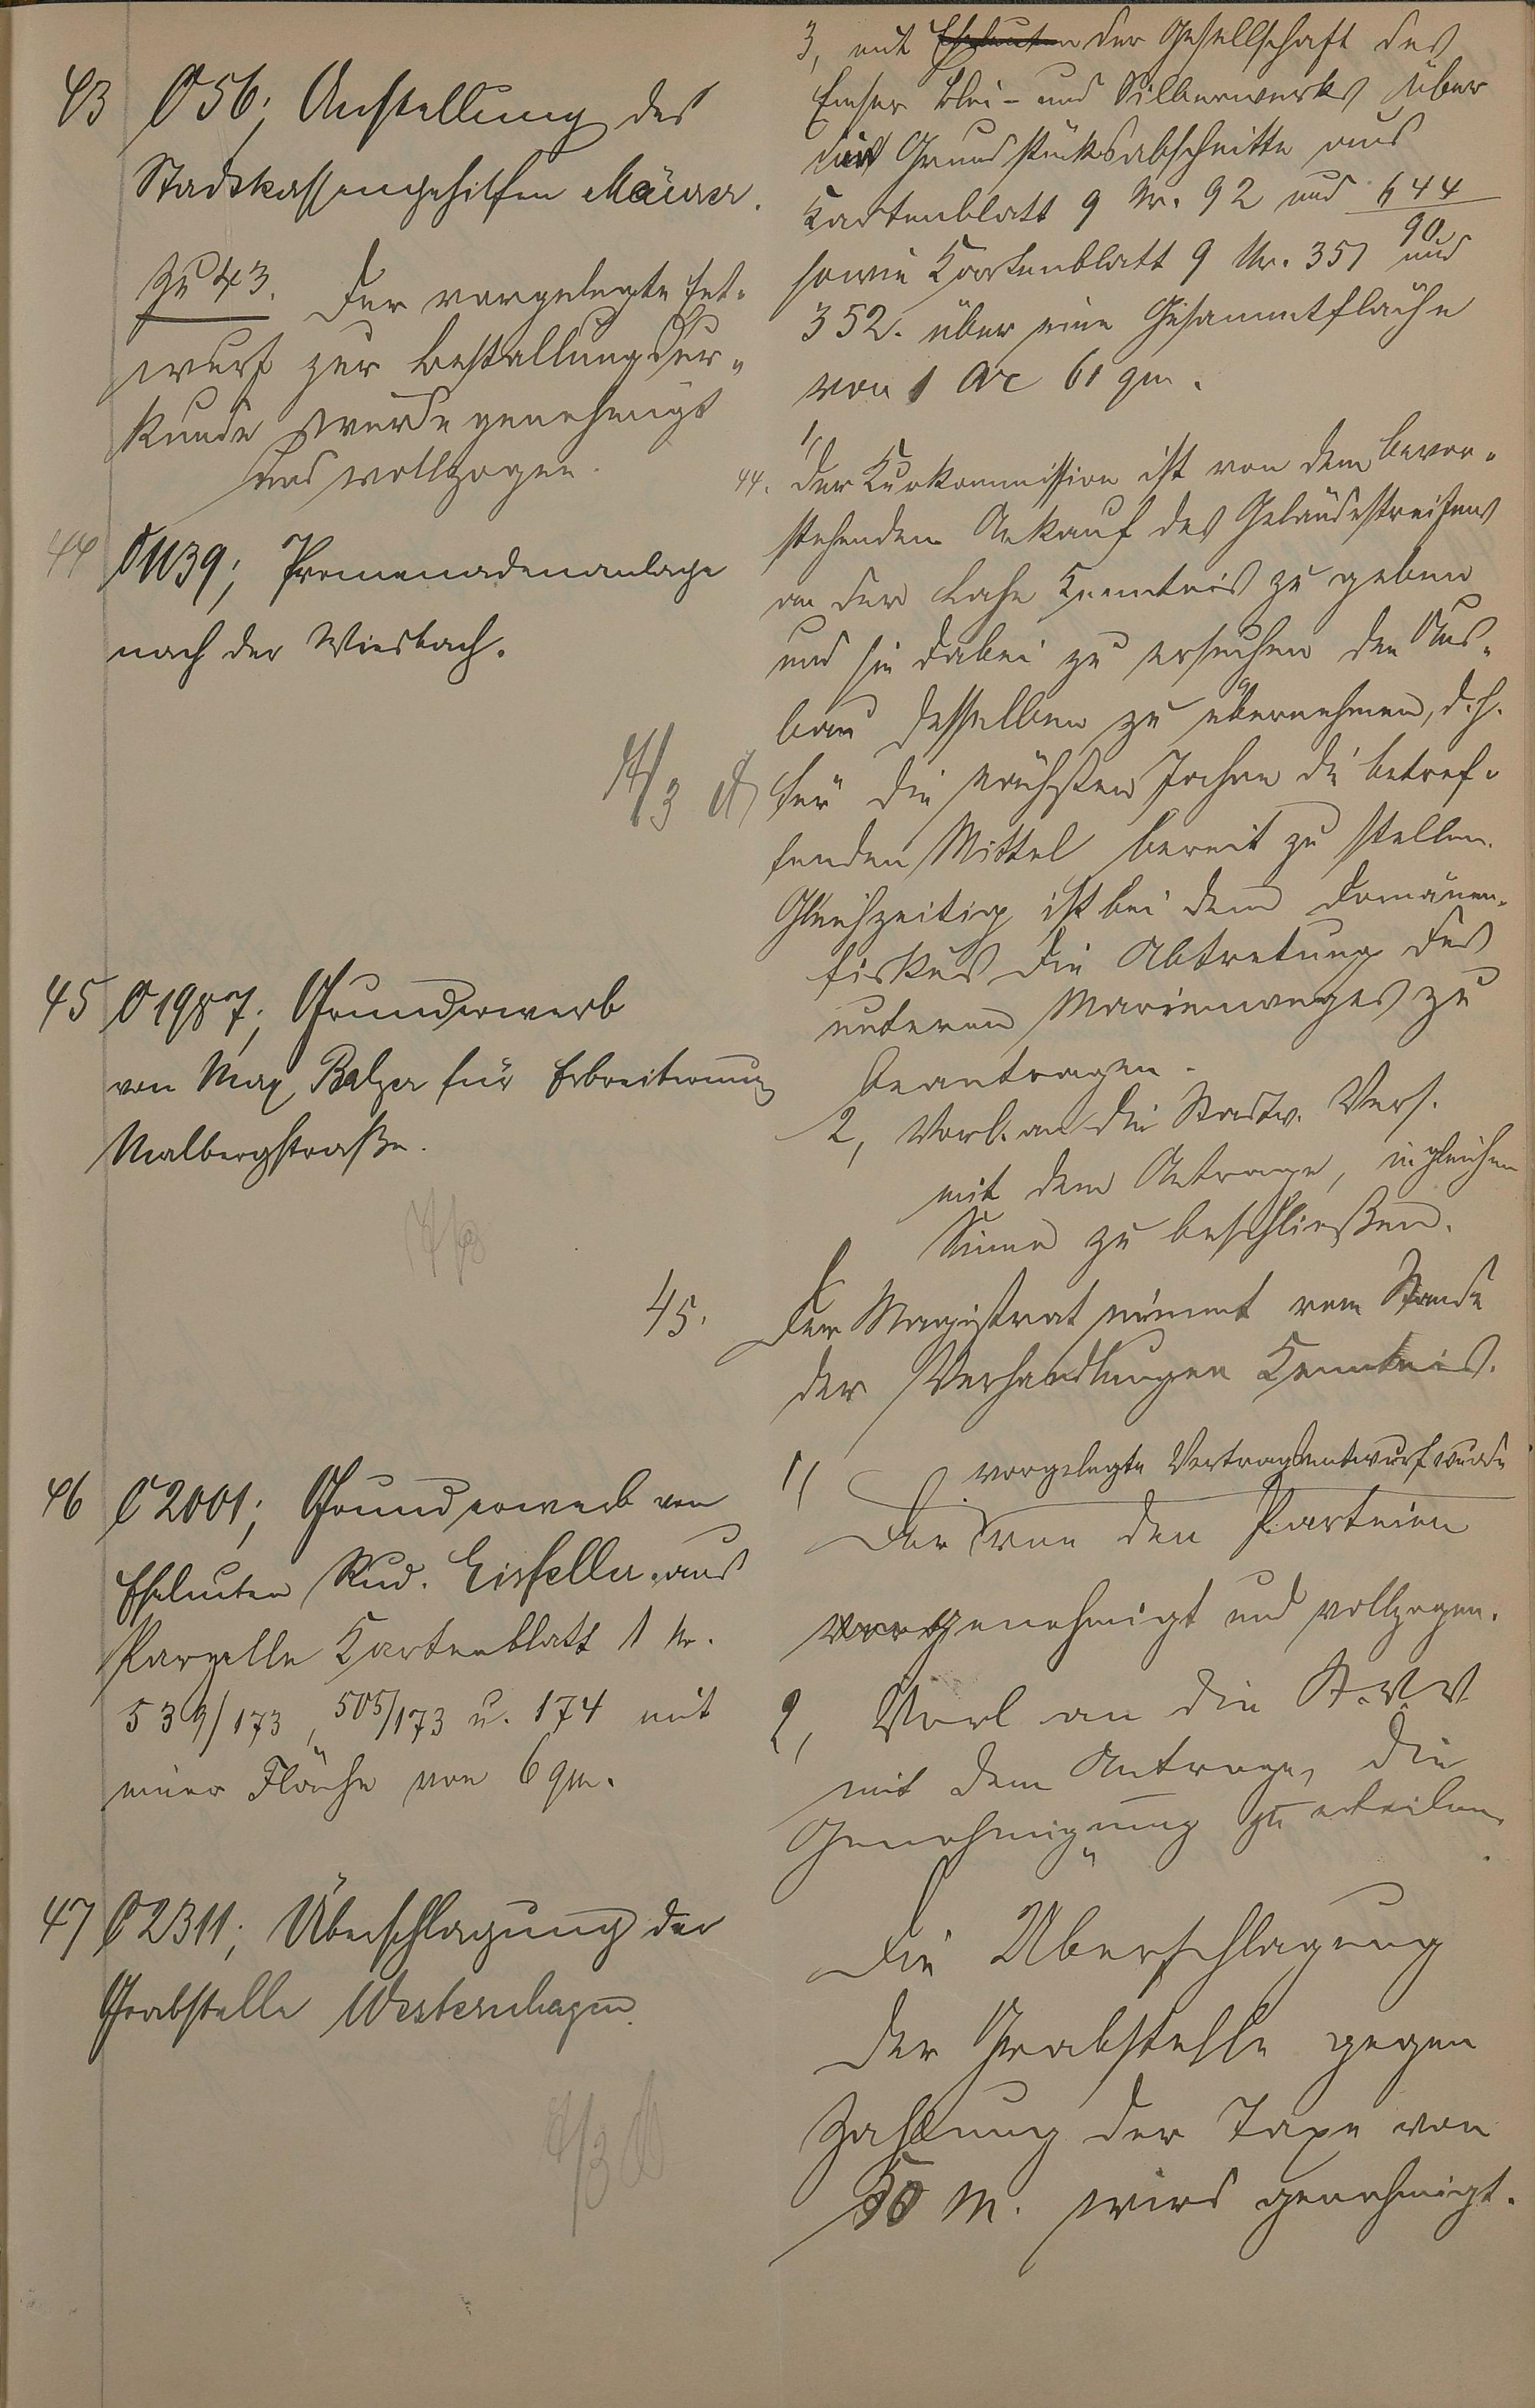 43 O 56; Anstellung des
Stadtkassengehilfen Mäurer.
Zu 43. Der vorgelegte Ent-
wurf zur Bestallungsur-
kunde wurde genehmigt
und vollzogen.
44 O 1139; Promenadenanlage
nach der Wiesbach.
45 O 1987; Grunderwerb
von Max Balzer für Erbreiterung
Malbergstraße.
46 O 2001; Grunderwerb von
Eheleuten Rud. Eisfeller aus
Parzelle Kartenblatt 1 Nr.
539/173, 505/173 u. 174 mit
einer Fläche von 6 qm.
47 O 2311; Überschlagung der
Grabstelle Westernhagen.
3, mit Eheleuten der Gesellschaft des
Emser Blei- und Silberwerks über
die Grundstücksabschnitte aus
Kartenblatt 9 Nr. 92 und 644/90
sowie Kartenblatt 9 Nr. 351 und
352. über eine Gesammtfläche
von 1 Ar 61 qm.
1,
44. Der Kurkommission ist von dem bevor-
stehenden Ankauf des Geländestreifens
an der Lahn Kenntnis zu geben
und sie dabei zu ersuchen den Aus-
bau desselben zu übernehmen, d.h.
für die nächsten Jahre die betref-
fenden Mittel bereit zu stellen.
Gleichzeitig ist bei dem Domänen-
fiskus die Abtretung des
unteren Marienweges zu
beantragen.
2, Vorl. an die Stadtv. Vers.
mit dem Antrage, in gleichem
Sinne zu beschließen.
45. Der Magistrat nimmt vom Stande
der Verhandlungen Kenntnis.
1, vorgelegte Vertragsentwurf wurde
Der von den Parteien
genehmigt und vollzogen.
2, Vorl an die St.V.V.
mit dem Antrage, die
Genehmigung zu erteilen.
Die Überschlagung
der Grabstelle gegen
Zahlung der Taxe von
50 M. wird genehmigt.